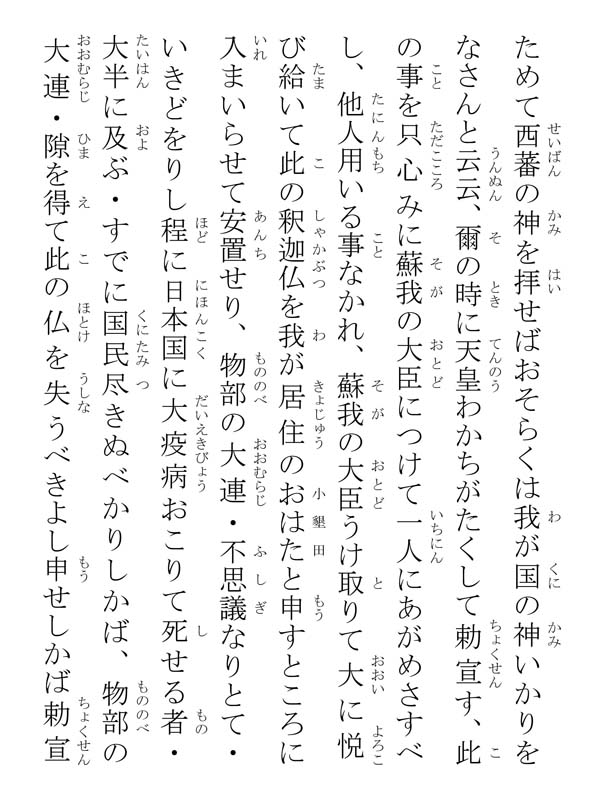 ためて西蕃の神を拝せばおそらくは我が国の神いかりを
なさんと云云、爾の時に天皇わかちがたくして勅宣す、此
の事を只心みに蘇我の大臣につけて一人にあがめさすべ
し、他人用いる事なかれ、蘇我の大臣うけ取りて大に悦
び給いて此の釈迦仏を我が居住のおはたと申すところに
入まいらせて安置せり、物部の大連・不思議なりとて・
いきどをりし程に日本国に大疫病おこりて死せる者・
大半に及ぶ・すでに国民尽きぬべかりしかば、物部の
大連・隙を得て此の仏を失うべきよし申せしかば勅宣